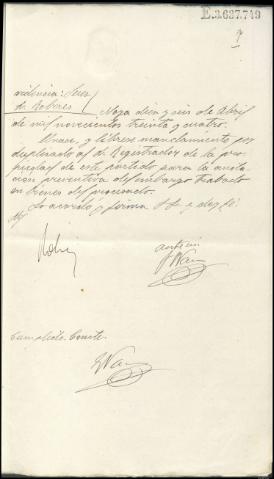 E.3.637,749
Providencia: Juez
Sr. Roberes / Noya diez y seis de Abril
de mil novecientos treinta y cuatro.
Unase, y líbrese mandamiento por
duplicado al Sr. Registrador de la pro-
piedad de este partido para la anota-
ción preventiva del embargo trabado
en bienes del procesado.
Lo acordó y firma SSª y doy fé.
Ante mi
Cumplido. Conste.